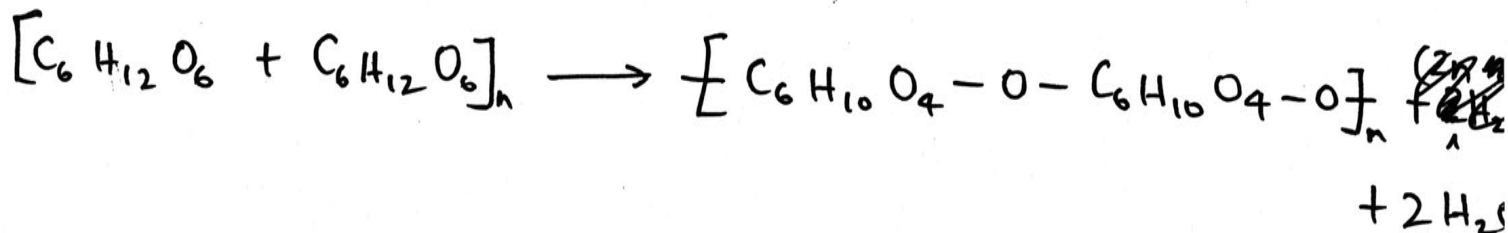 [C₆H₁₂O₆ + C₆H₁₂O₆]ₙ ⟶ -[C₆H₁₀O₄-O-C₆H₁₀O₄-O]-ₙ
+ 2H₂